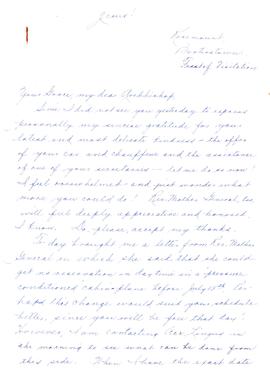 Jesus!
Rosemount
Booterstown
Feast of Visitation
Your Grace, my dear Archbishop,
Since I did not see you yesterday to express
personally my sincere gratitude for your
latest and most delicate kindness - the offer
of your car and chauffeur and the assistance
of one of your secretaries - let me do so now!
I feel overwhelmed - and just wonder what
more you could do! Rev. Mother General, too
will feel deeply appreciative and honored.
I know. So, please, accept my thanks.
To day brought me a letter from Rev. Mother
General in which she said that she could
get no reservation in day time in a "pressure
conditioned cabin-plane before July 15th. Per-
haps this change would suit your schedule
better, since you will be free that day!
However, I am contacting
in
the morning to see what can be done from
this side. When I have the exact date